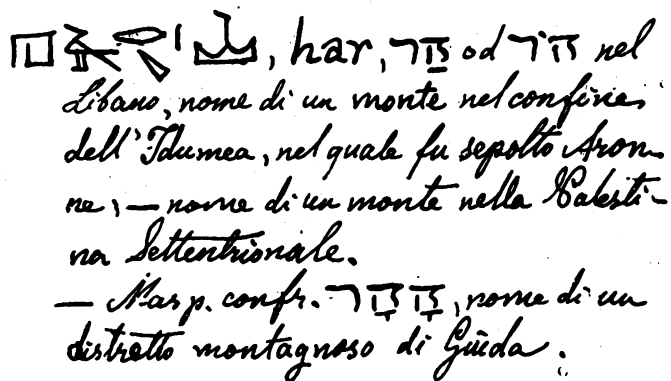 , har, הַר od הֹר nel
Libano, nome di un monte nel confine
dell'Idumea, nel quale fu sepolto Aron-
ne; — nome di un monte nella Palesti-
na Settentrionale.
— Masp. confr. הָהָר, nome di un
distretto montagnoso di Giuda.